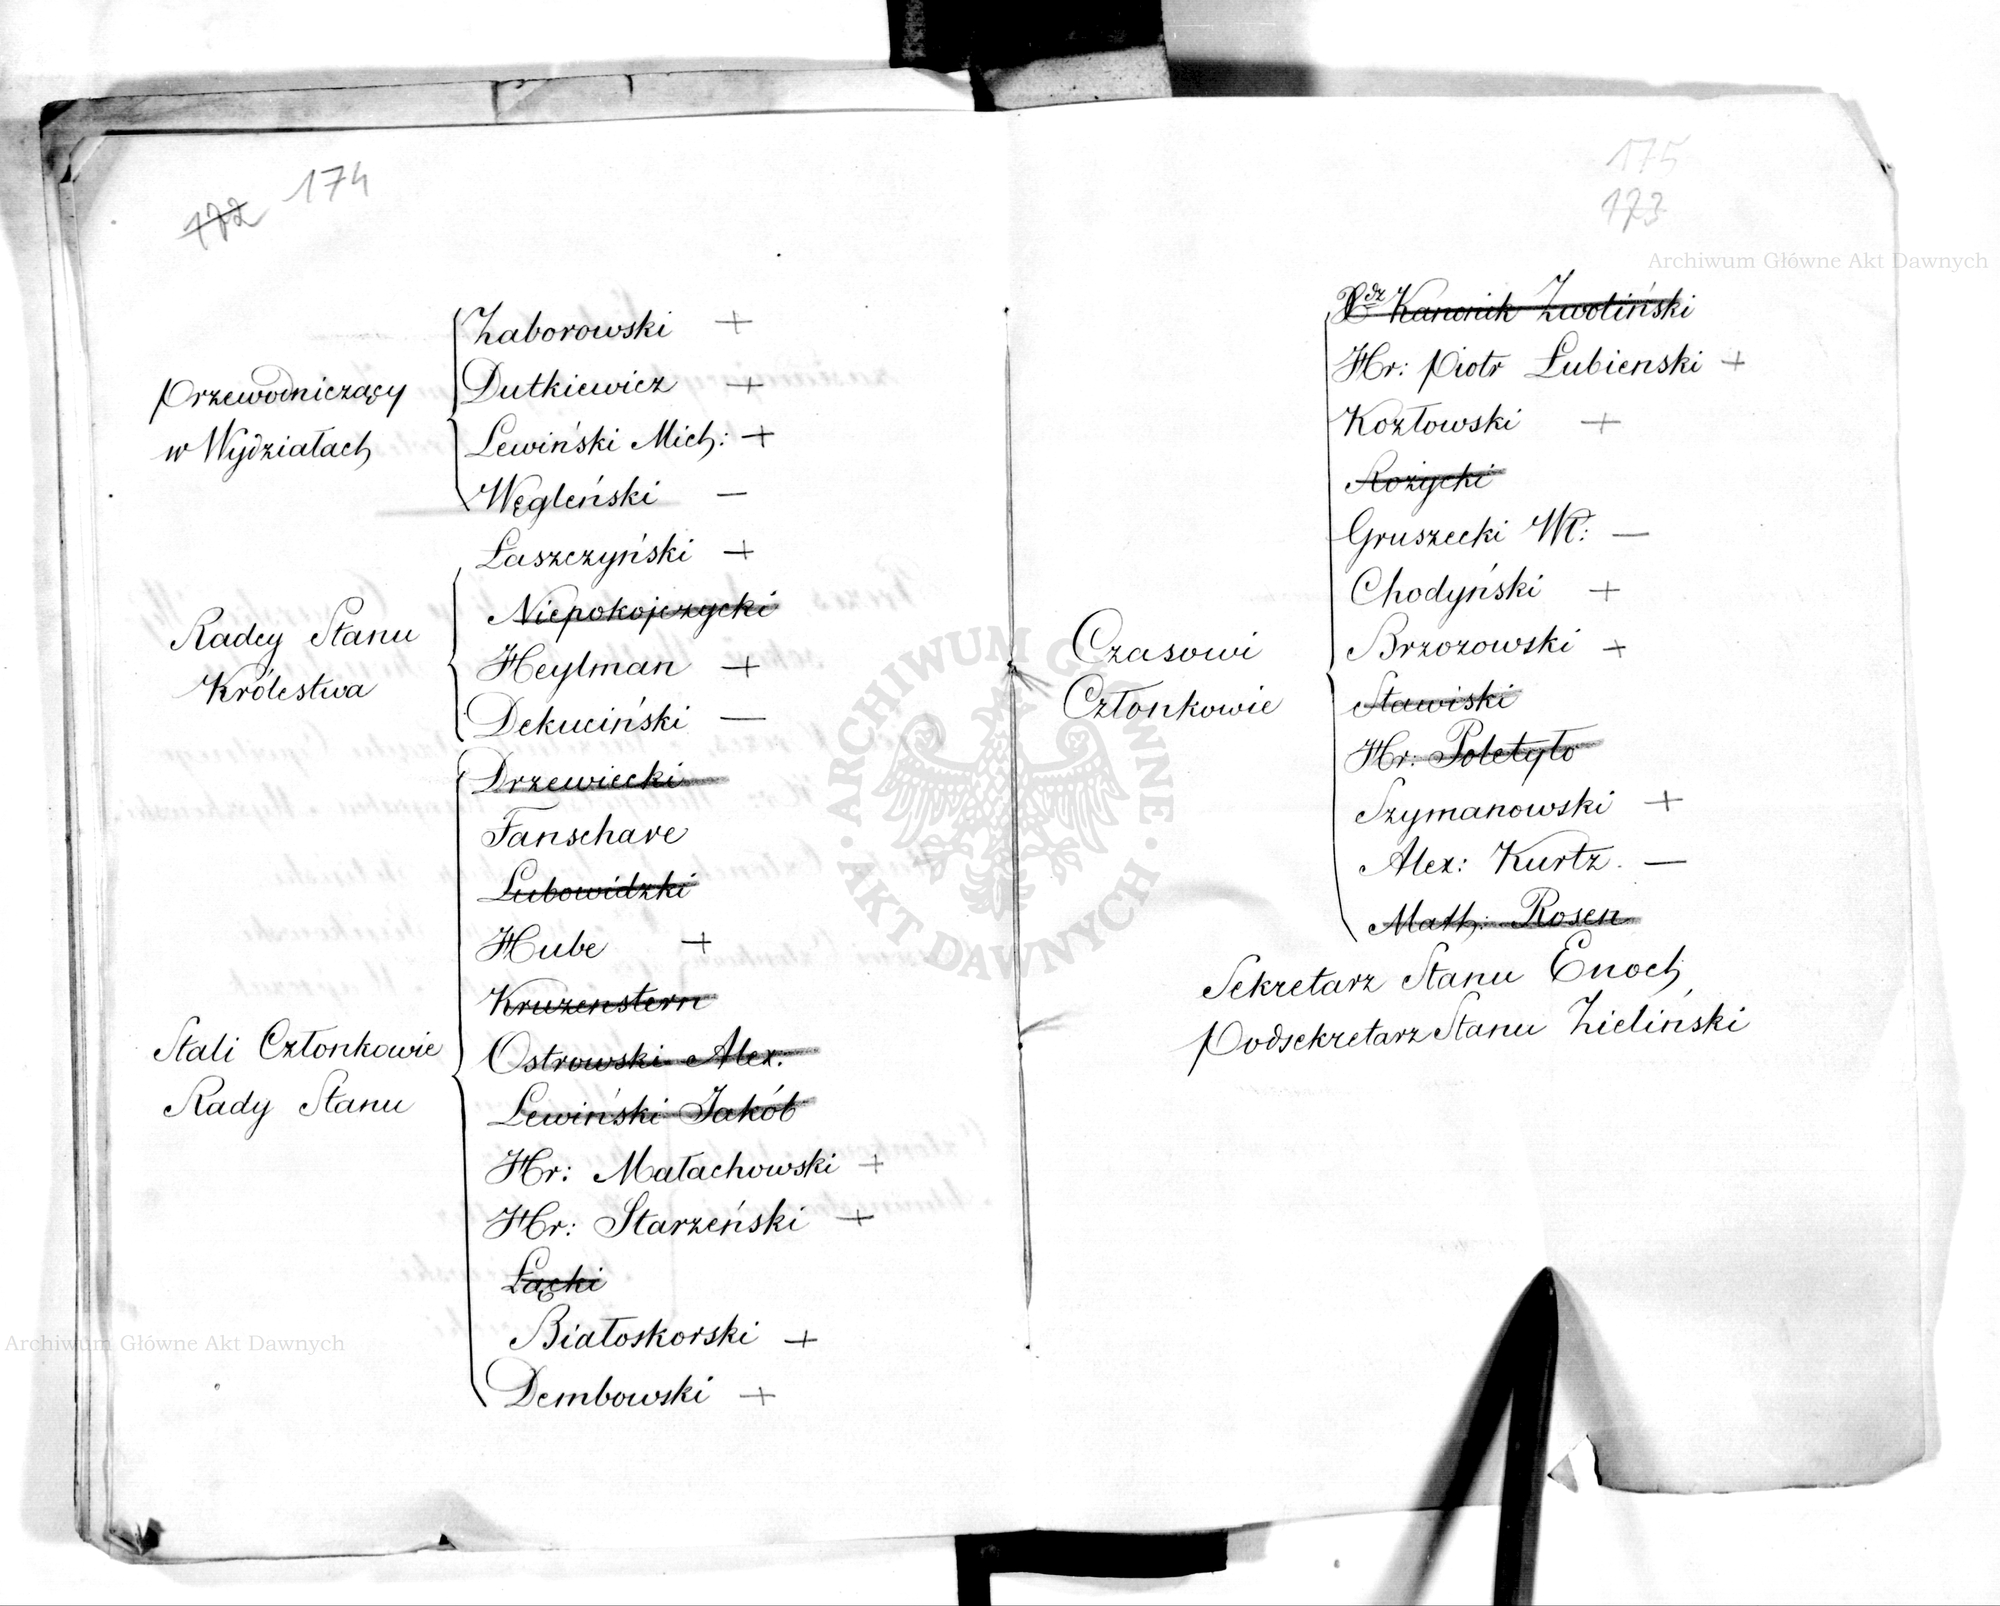 172 174
Przewodniczący
w Wydziałach
Zaborowski +
Dutkiewicz +
Lewiński Mich: +
Węgleński —
Radcy Stanu
Królestwa
Łaszczyński +
Niepokojczycki
Heylman +
Dekuciński —
Stali Członkowie
Rady Stanu
Drzewiecki
Fanschave
Lubowidzki
Hube +
Kruzenstern
Ostrowski Alex:
Lewiński Jakób
Hr: Małachowski +
Hr: Starzeński +
Łącki
Białoskorski +
Dembowski +
175
173
Czasowi
Członkowie
Xdz Kanonik Zwoliński
Hr: Piotr Łubienski +
Kozłowski +
Rożycki
Gruszecki Wł: —
Chodyński +
Brzozowski +
Stawiski
Hr: Poletyło
Szymanowski +
Alex: Kurtz. —
Math: Rosen
Sekretarz Stanu Enoch
Podsekretarz Stanu Zieliński
Archiwum Główne Akt Dawnych
Archiwum Główne Akt Dawnych
ARCHIWUM GŁÓWNE · AKT DAWNYCH ·